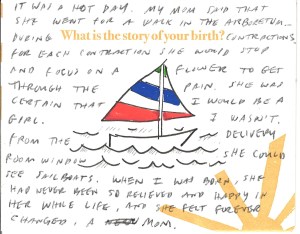 IT WAS A HOT DAY. MY MOM SAID THAT
SHE WENT FOR A WALK IN THE ARBORETUM...
DURING What is the story of your birth? CONTRACTIONS.
FOR EACH CONTRACTION SHE WOULD STOP
AND FOCUS ON A FLOWER TO GET
THROUGH THE PAIN. SHE WAS
CERTAIN THAT I WOULD BE A
GIRL. I WASN'T.
FROM THE DELIVERY
ROOM WINDOW SHE COULD
SEE SAILBOATS. WHEN I WAS BORN, SHE
HAD NEVER BEEN SO RELIEVED AND HAPPY IN
HER WHOLE LIFE, AND SHE FELT FOREVER
CHANGED, A MOM.